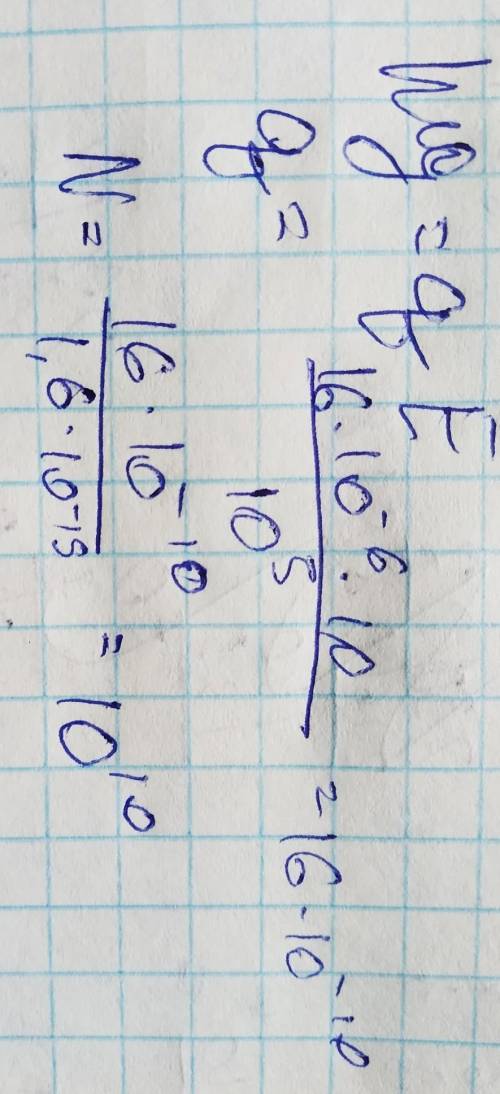 mg = qE
q = \frac{16 \cdot 10^{-6} \cdot 10}{10^5} = 16 \cdot 10^{-10}
N = \frac{16 \cdot 10^{-10}}{1,6 \cdot 10^{-19}} = 10^{10}